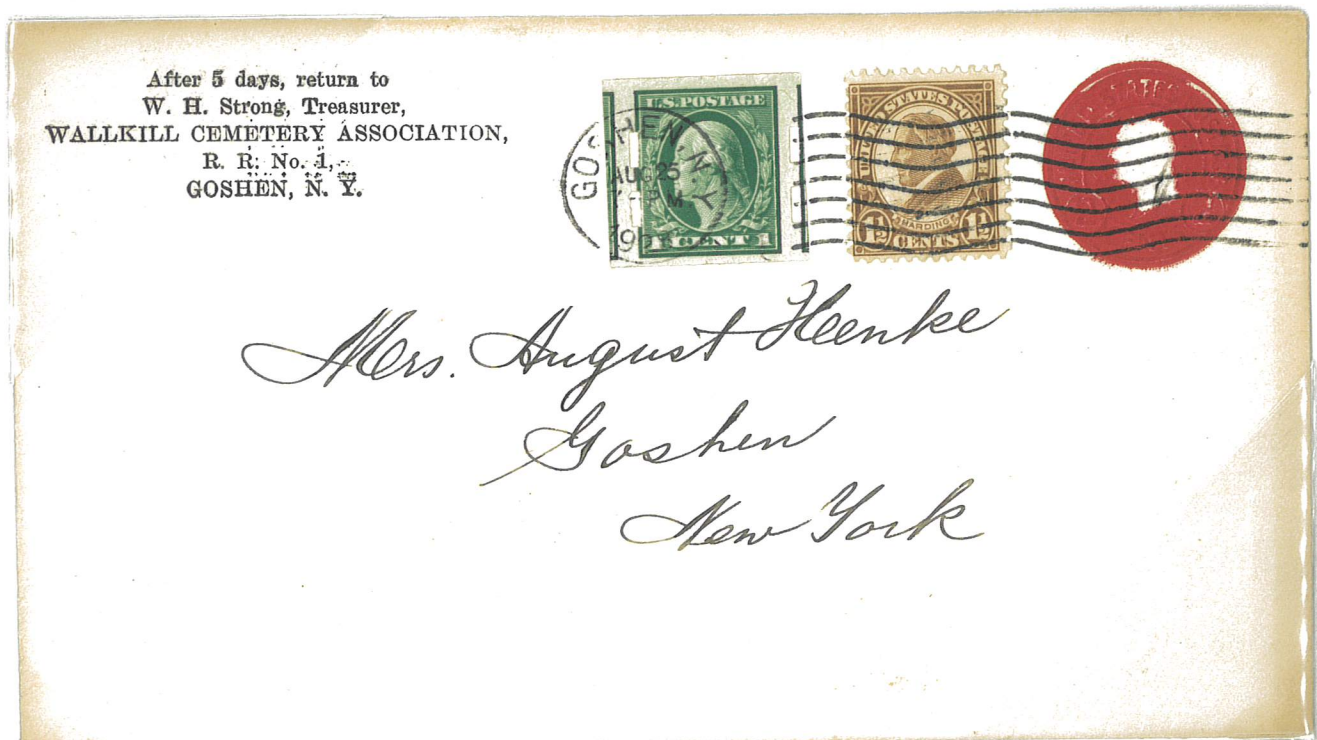 After 5 days, return to
W. H. Strong, Treasurer,
WALLKILL CEMETERY ASSOCIATION,
R. R. No. 1,
GOSHEN, N. Y.
GOSHEN, N.Y.
AUG 25
M
19
U.S. POSTAGE
1 CENT 1
UNITED STATES POSTAGE
HARDING
1½ CENTS 1½
Mrs. August Henke
Goshen
New York